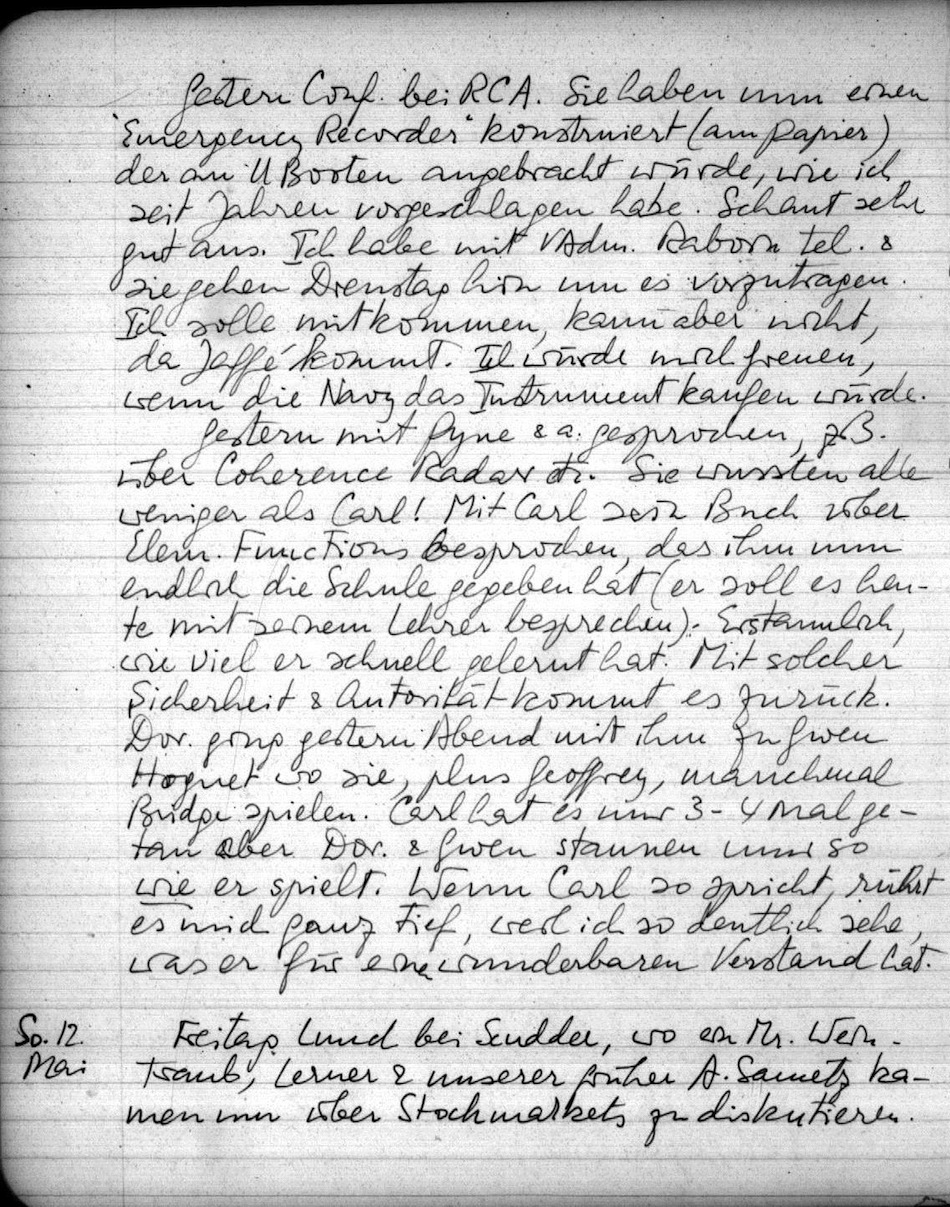 Gestern Conf. bei RCA. Sie haben nun einen
"Emergency Recorder" konstruiert (am Papier)
der an U Booten angebracht würde, wie ich
seit Jahren vorgeschlagen habe. Schaut sehr
gut aus. Ich habe mit VAdm. Raborn tel. &
sie gehen Dienstag hin um es vorzutragen.
Ich solle mitkommen, kann aber nicht,
da Jaffé kommt. Ich würde mich freuen,
wenn die Navy das Instrument kaufen würde.
Gestern mit Pyne & a. gesprochen, zB.
über Coherence Radar etc. Sie wussten alle
weniger als Carl! Mit Carl sein Buch über
Elem. Functions besprochen, das ihm nun
endlich die Schule gegeben hat (er soll es heu-
te mit seinem Lehrer besprechen). Erstaunlich,
wie viel er schnell gelernt hat. Mit solcher
Sicherheit & Autorität kommt es zurück.
Dor. ging gestern Abend mit ihm zu Gwen
wo sie, plus Geoffrey, manchmal
Bridge spielen. Carl hat es nur 3-4 mal ge-
tan aber Dor. & Gwen staunen nur so
wie er spielt. Wenn Carl so spricht, rührt
es mich ganz tief, weil ich so deutlich sehe,
was er für einen wunderbaren Verstand hat.
So. 12. Freitag Lunch bei Scudder, wo ein Mr. Wein-
Mai traub, Lerner & unserer früher A. Sametz ka-
men um über Stockmarkets zu diskutieren.